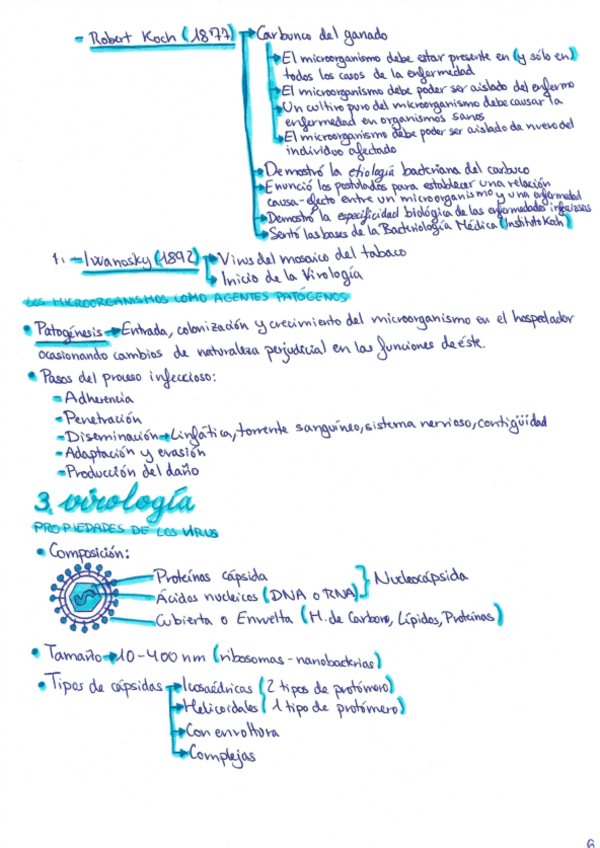 - Robert Koch (1877) → Carbunco del ganado
→ El microorganismo debe estar presente en (y sólo en)
todos los casos de la enfermedad
→ El microorganismo debe poder ser aislado del enfermo
→ Un cultivo puro del microorganismo debe causar la
enfermedad en organismos sanos
→ El microorganismo debe poder ser aislado de nuevo del
individuo afectado
→ Demostró la etiología bacteriana del carbuco
→ Enunció los postulados para establecer una relación
causa-efecto entre un microorganismo y una enfermedad
→ Demostró la especificidad biológica de las enfermedades infecciosas
→ Sentó las bases de la Bacteriología Médica (Instituto Koch)
- Iwanosky (1892) → Virus del mosaico del tabaco
→ Inicio de la Virología
LOS MICROORGANISMOS COMO AGENTES PATÓGENOS
• Patogénesis → Entrada, colonización y crecimiento del microorganismo en el hospedador
ocasionando cambios de naturaleza perjudicial en las funciones de éste.
• Pasos del proceso infeccioso:
- Adherencia
- Penetración
- Diseminación → Linfática, torrente sanguíneo, sistema nervioso, contigüidad
- Adaptación y evasión
- Producción del daño
3. virología
PROPIEDADES DE LOS VIRUS
• Composición:
Proteínas cápsida
Ácidos nucleicos (DNA o RNA) } Nucleocápsida
Cubierta o Envuelta (H. de Carbono, Lípidos, Proteínas)
• Tamaño → 10-400 nm (ribosomas - nanobacterias)
• Tipos de cápsidas → Icosaédricas (2 tipos de protómero)
→ Helicoidales (1 tipo de protómero)
→ Con envoltura
→ Complejas
6